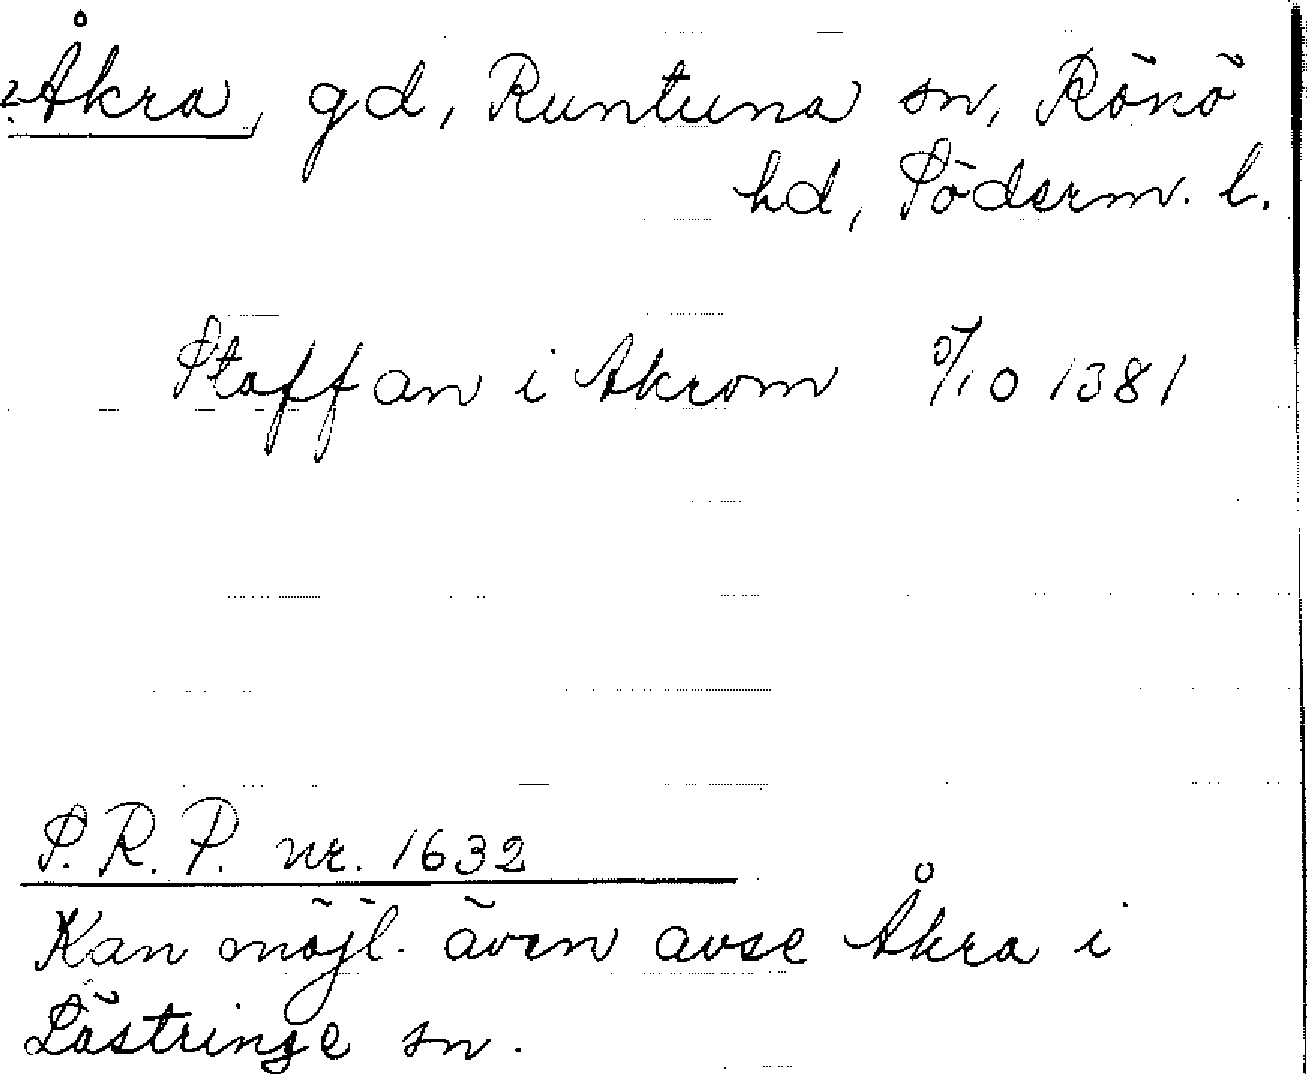 ? Åkra, gd, Runtuna sn, Rönö
hd, Söderm. l.
Staffan i Akrom 9/10 1381
S.R.P. nr. 1632
Kan möjl. även avse Åkra i
Lästringe sn.